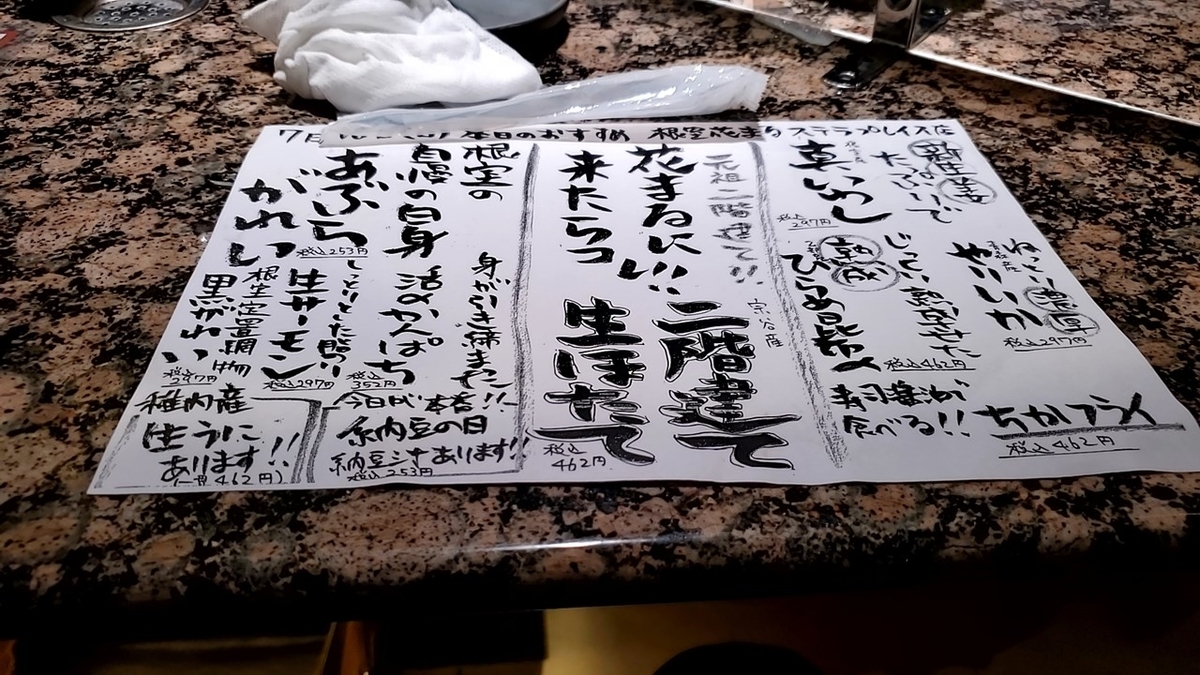 本日のおすすめ 根室花まる ステラプレイス店
新生姜
たっぷりで
真いわし
税込297円
ねっとり濃厚
青森産
やりいか
税込297円
じっくり熟成させた
熟成
ひらめ昆布〆
税込462円
寿司醤油で
食べる!!
ちかフライ
税込462円
元祖二階建て!!
花まるに!!!
来たらコレ
宗谷産
二階建て
生ほたて
税込462円
根室の
自慢の白身
あぶら
がれい
税込253円
身がひき締まった
活〆かんぱち
税込352円
しっとりとした脂の
生サーモン
税込297円
根室定置網物
黒がれい
税込297円
今日が本番!!
糸内豆の日
納豆汁あります!!
税込253円
稚内産
生うに
あります!!
(一貫462円)